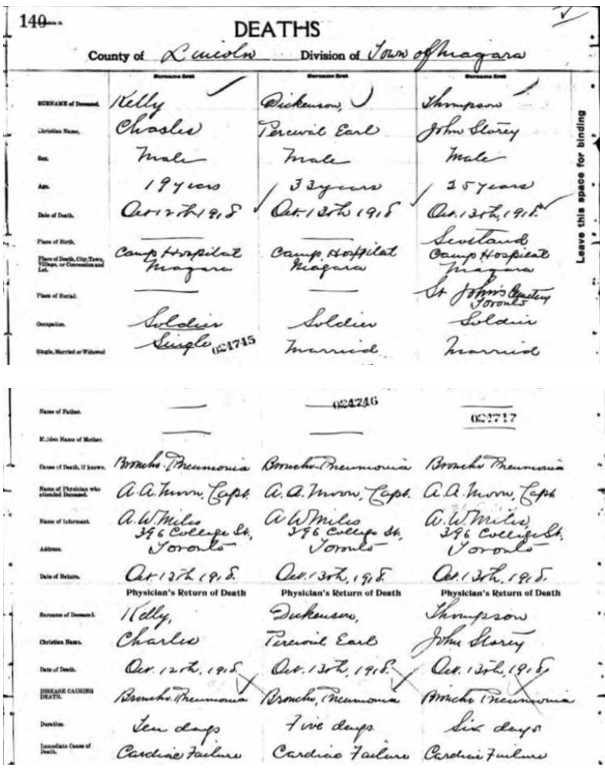 140
DEATHS
County of Lincoln Division of Town of Niagara
Surname first Surname first Surname first
SURNAME of Deceased. Kelly Dickenson, Thompson
Christian Name. Charles Percevil Earl John Storey
Sex. Male Male Male
Age. 19 years 33 years 25 years
Date of Death. Oct 12th 1918 Oct. 13th, 1918 Oct. 13th, 1918
Place of Birth. Scotland
Place of Death, City, Town, Village, or Concession and Lot. Camp Hospital Niagara Camp, Hospital Niagara Camp Hospital Niagara
Place of Burial. St John's Cemetery Toronto
Occupation. Soldier Soldier Soldier
Single, Married or Widowed Single Married Married
024745
Leave this space for binding
024746
Name of Father. 024747
Maiden Name of Mother.
Cause of Death, if known. Broncho-Pneumonia Broncho-Pneumonia Broncho Pneumonia
Name of Physician who attended Deceased. A. A. Moon, Capt. A. A. Moon, Capt. A. A. Moon, Capt
Name of Informant. A. W Miles A W Miles A. W. Miles,
396 College St, 396 College St, 396 College St.
Address. Toronto Toronto Toronto
Date of Return. Oct 13th 1918. Oct. 13th, 1918. Oct. 13th, 1918.
Physician's Return of Death Physician's Return of Death Physician's Return of Death
Surname of Deceased. Kelly, Dickenson, Thompson
Christian Name. Charles Percevil Earl John Storey
Date of Death. Oct. 12th, 1918 Oct. 13th, 1918 Oct. 13th, 1918
DISEASE CAUSING DEATH. Broncho-Pneumonia Broncho, Pneumonia Broncho Pneumonia
Duration. Ten days Five days Six days
Immediate Cause of Death. Cardiac Failure Cardiac Failure Cardiac Failure